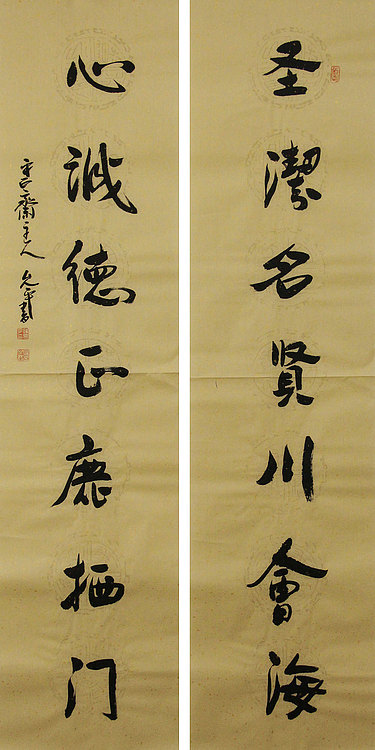 圣潔名贤川會海
心誠德正鹿栖门
齋主人
書